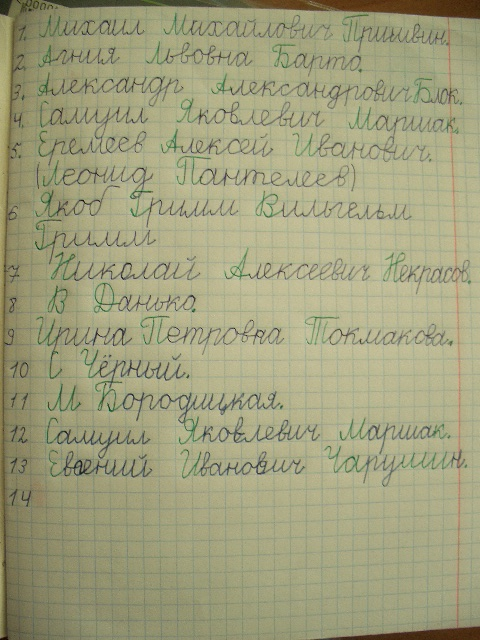 1. Михаил Михайлович Пришвин.
2. Агния Львовна Барто.
3. Александр Александрович Блок.
4. Самуил Яковлевич Маршак.
5. Еремеев Алексей Иванович.
(Леонид Пантелеев)
6 Якоб Гримм Вильгельм
Гримм
7 Николай Алексеевич Некрасов.
8 В Данько.
9 Ирина Петровна Токмакова.
10 С Чёрный.
11 М Бородицкая.
12 Самуил Яковлевич Маршак.
13 Евгений Иванович Чарушин.
14